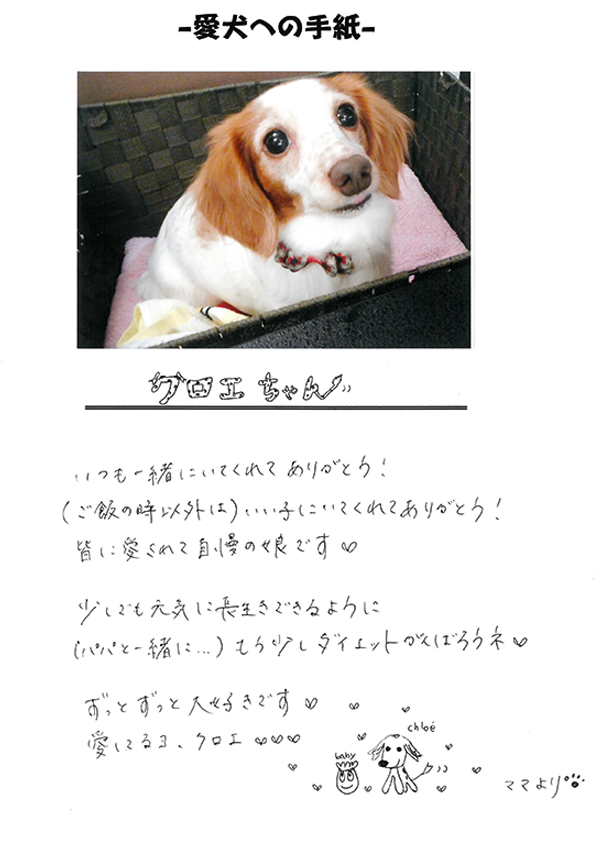 -愛犬への手紙-
クロエちゃん
いつも一緒にいてくれてありがとう!
(ご飯の時以外は)いい子にいてくれてありがとう!
皆に愛されて自慢の娘です♡
少しでも元気に長生きできるように
(パパと一緒に...)もう少しダイエットがんばろうネ♡
ずっとずっと大好きです♡
愛してるヨ、クロエ♡♡♡
chloé
baby
ママより